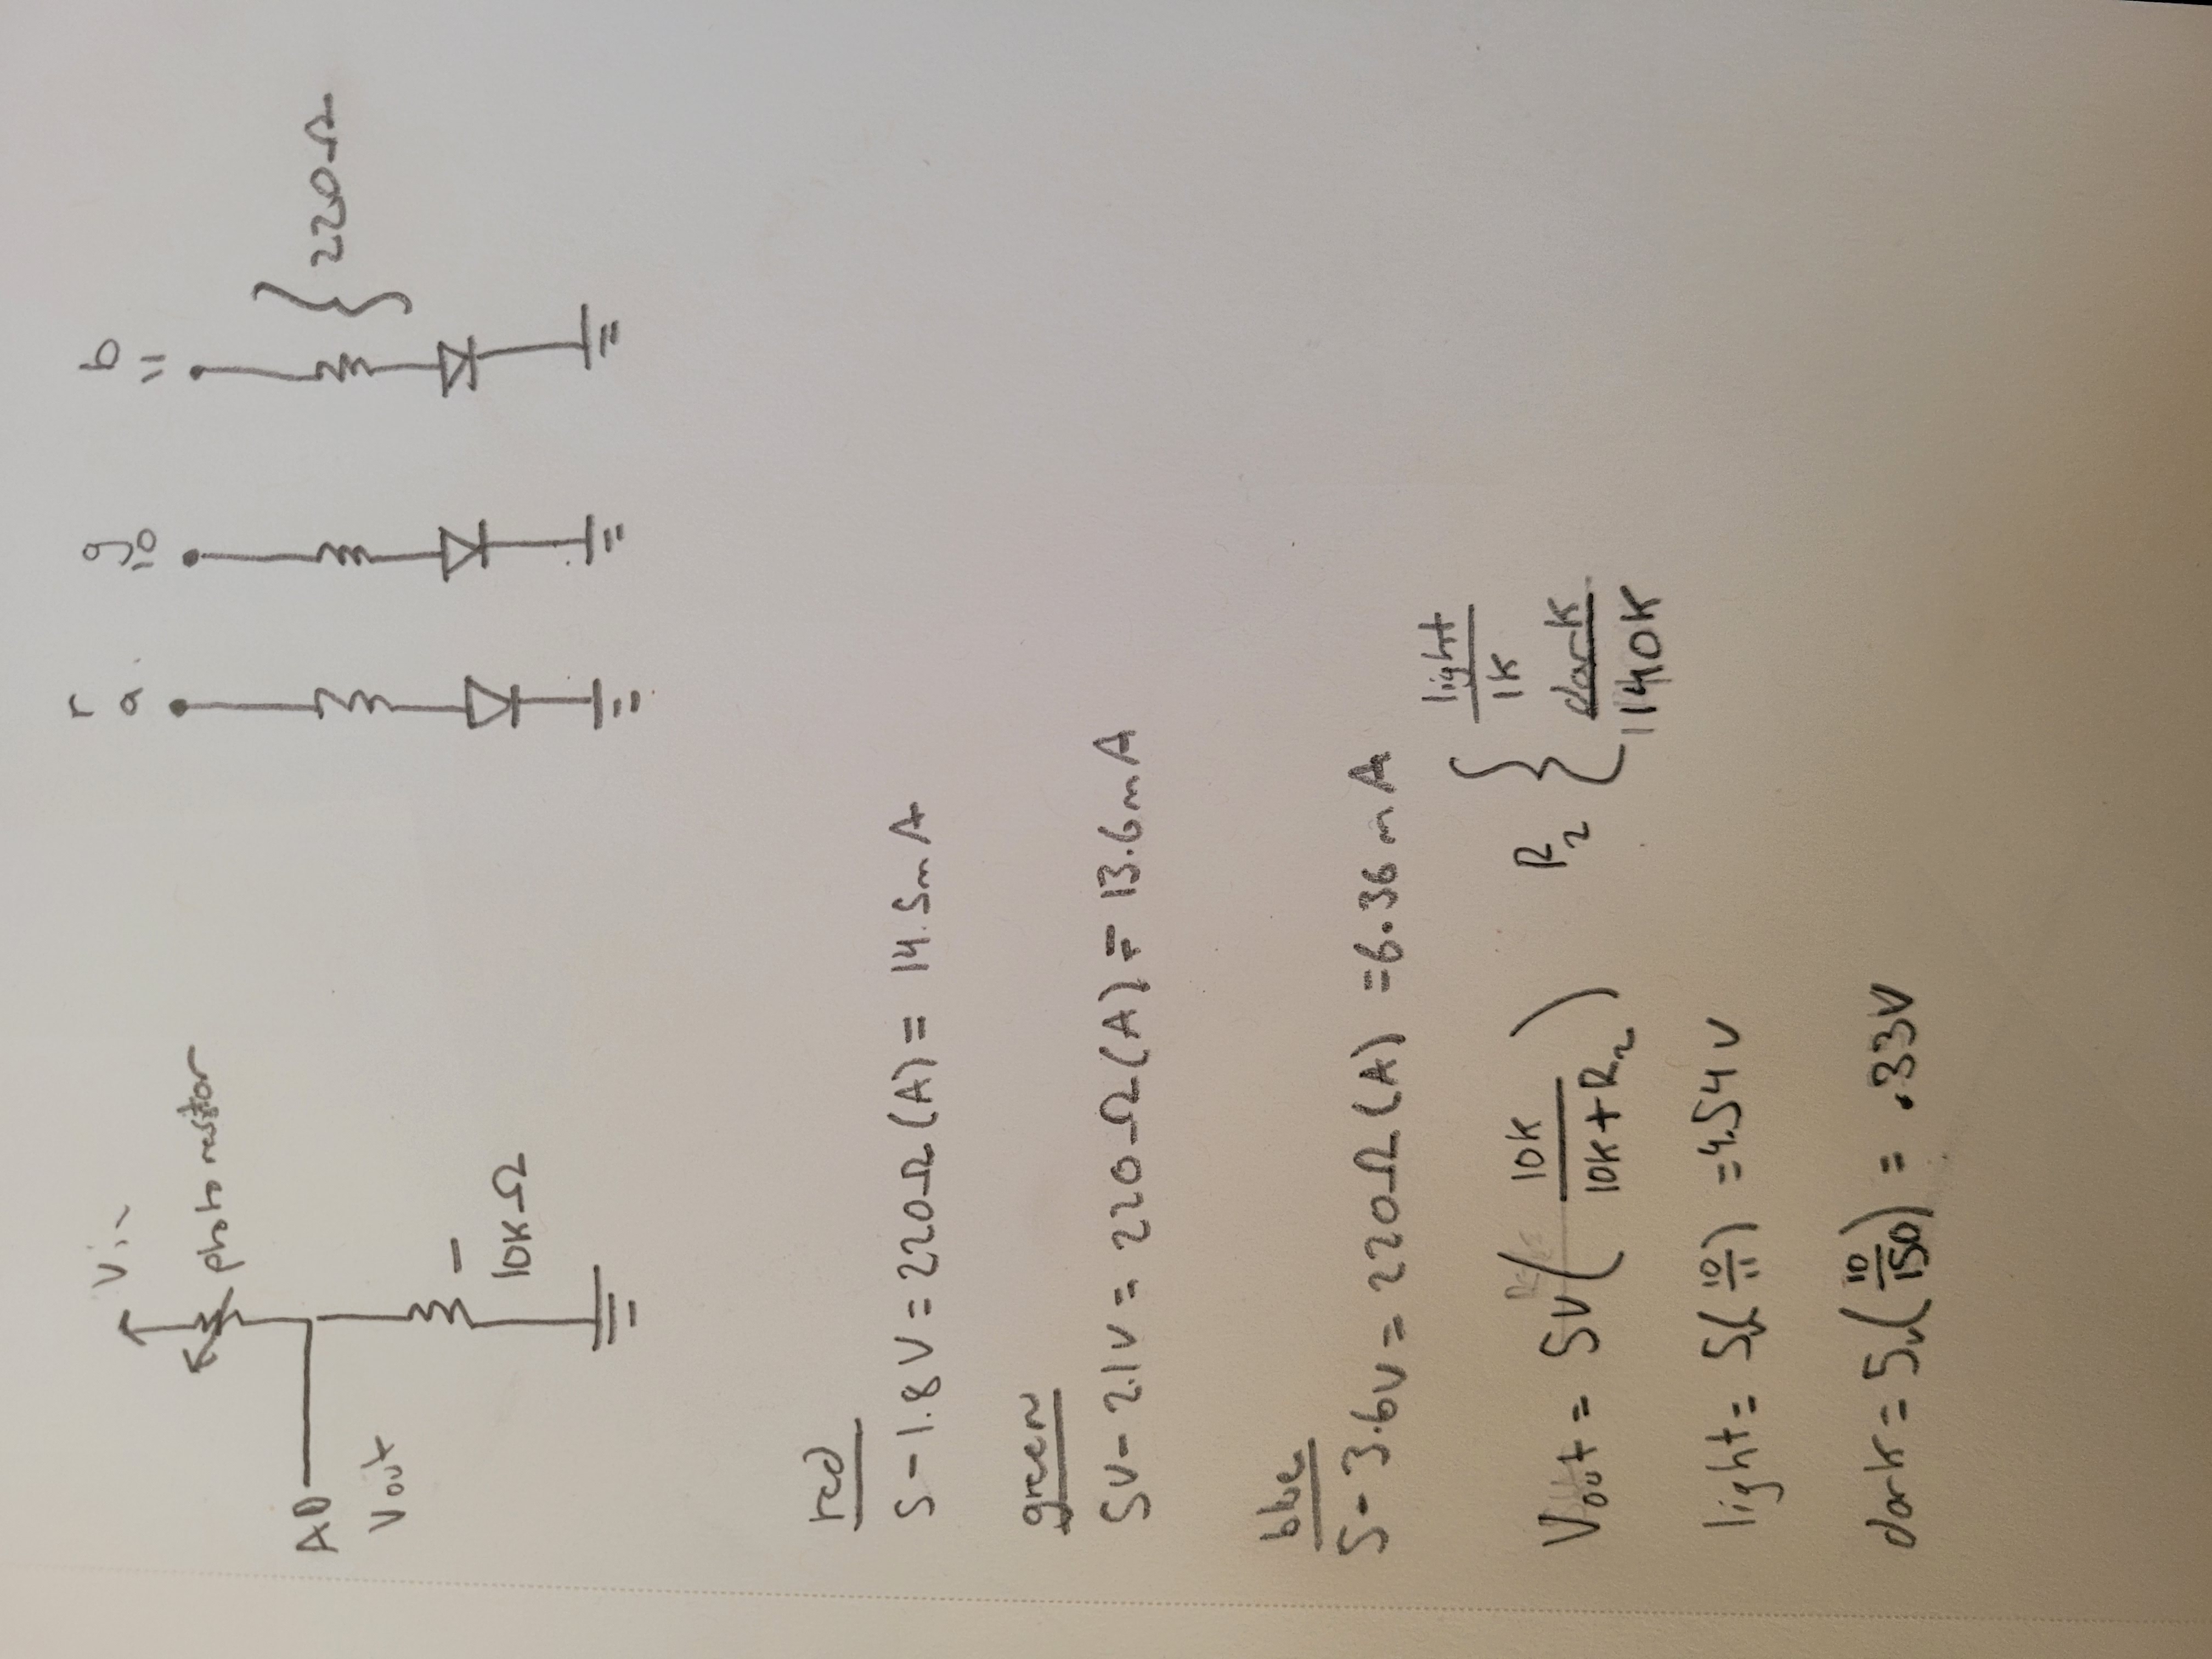 Vin
photo resistor
A0
Vout
10KΩ
r g b
9 10 11
220Ω
red
5-1.8V = 220Ω(A) = 14.5mA
green
5V-2.1V = 220Ω(A) = 13.6mA
blue
5-3.6V = 220Ω(A) = 6.36mA
Vout = 5V(10K/10K+R2)
R2 { light
1K
dark
140K
light = 5v(10/11) = 4.54V
dark = 5v(10/150) = .33V